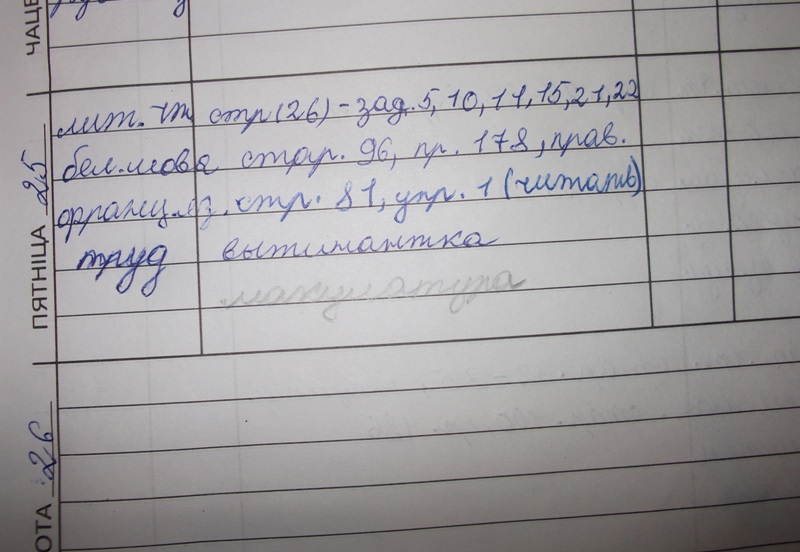 ЧАЦВ
ПЯТНІЦА 25
лит. чт стр (26) - зад. 5, 10, 11, 15, 21, 22
бел. мова стар. 96, пр. 178, прав.
франц. яз. стр. 81, упр. 1 (читать)
труд вытинантка
макулатура
ОТА 26